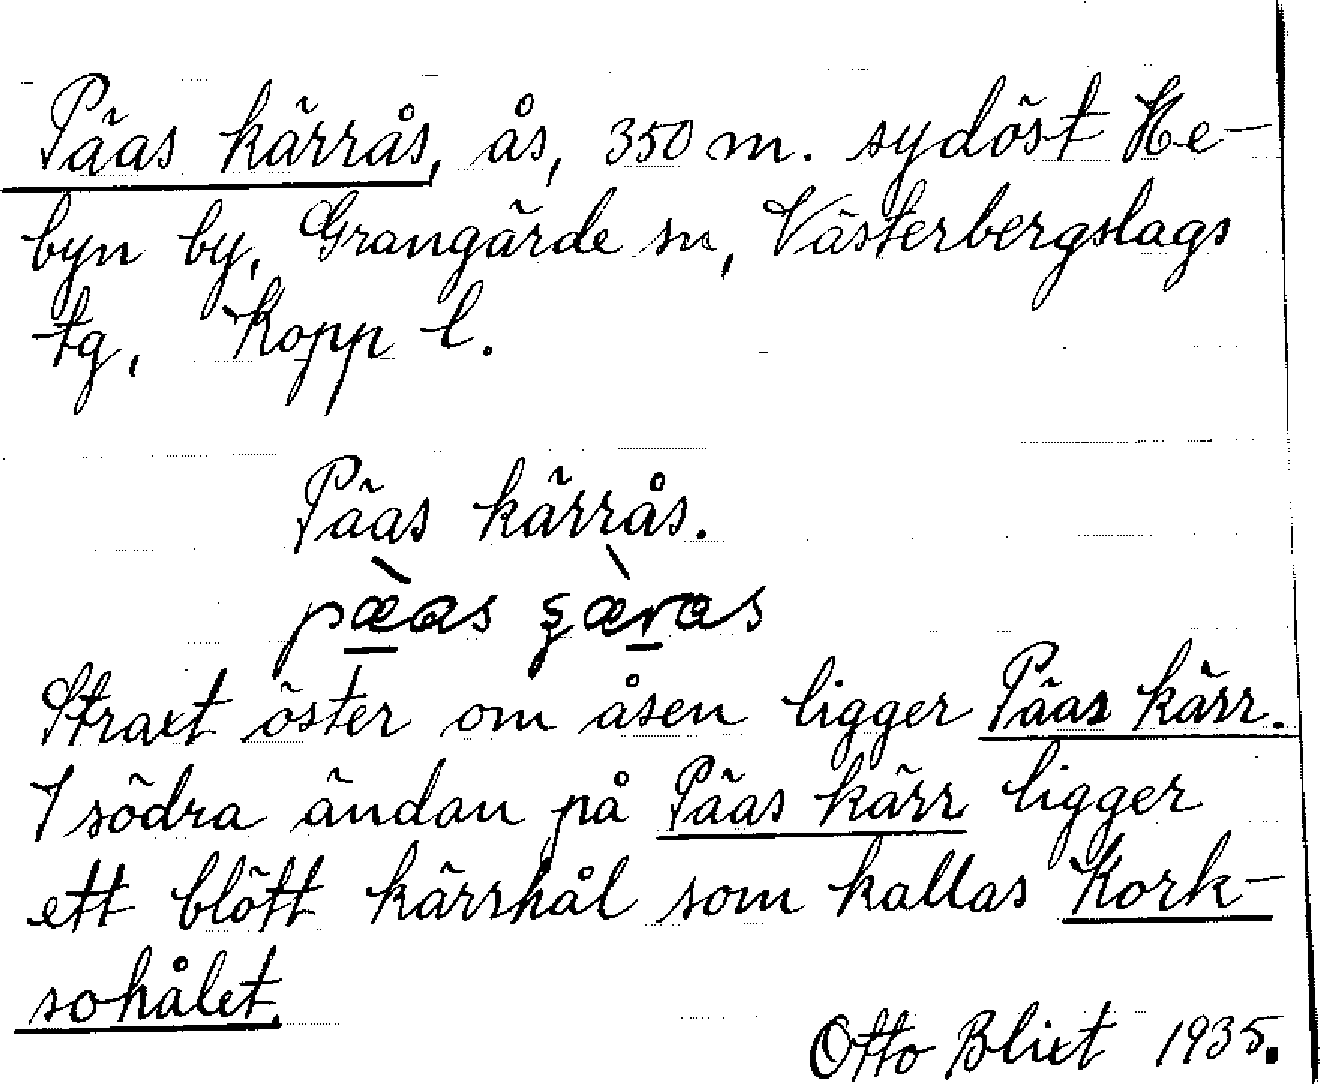 Päas kärrås, ås, 350 m. sydöst He-
byn by, Grangärde sn, Västerbergslags
tg, Kopp l.
Päas kärrås.
pæ̀as ʂæ̀ras
Straxt öster om åsen ligger Päas kärr.
I södra ändan på Päas kärr ligger
ett blött kärrhål som kallas Kork-
sohålet.
Otto Blixt 1935.